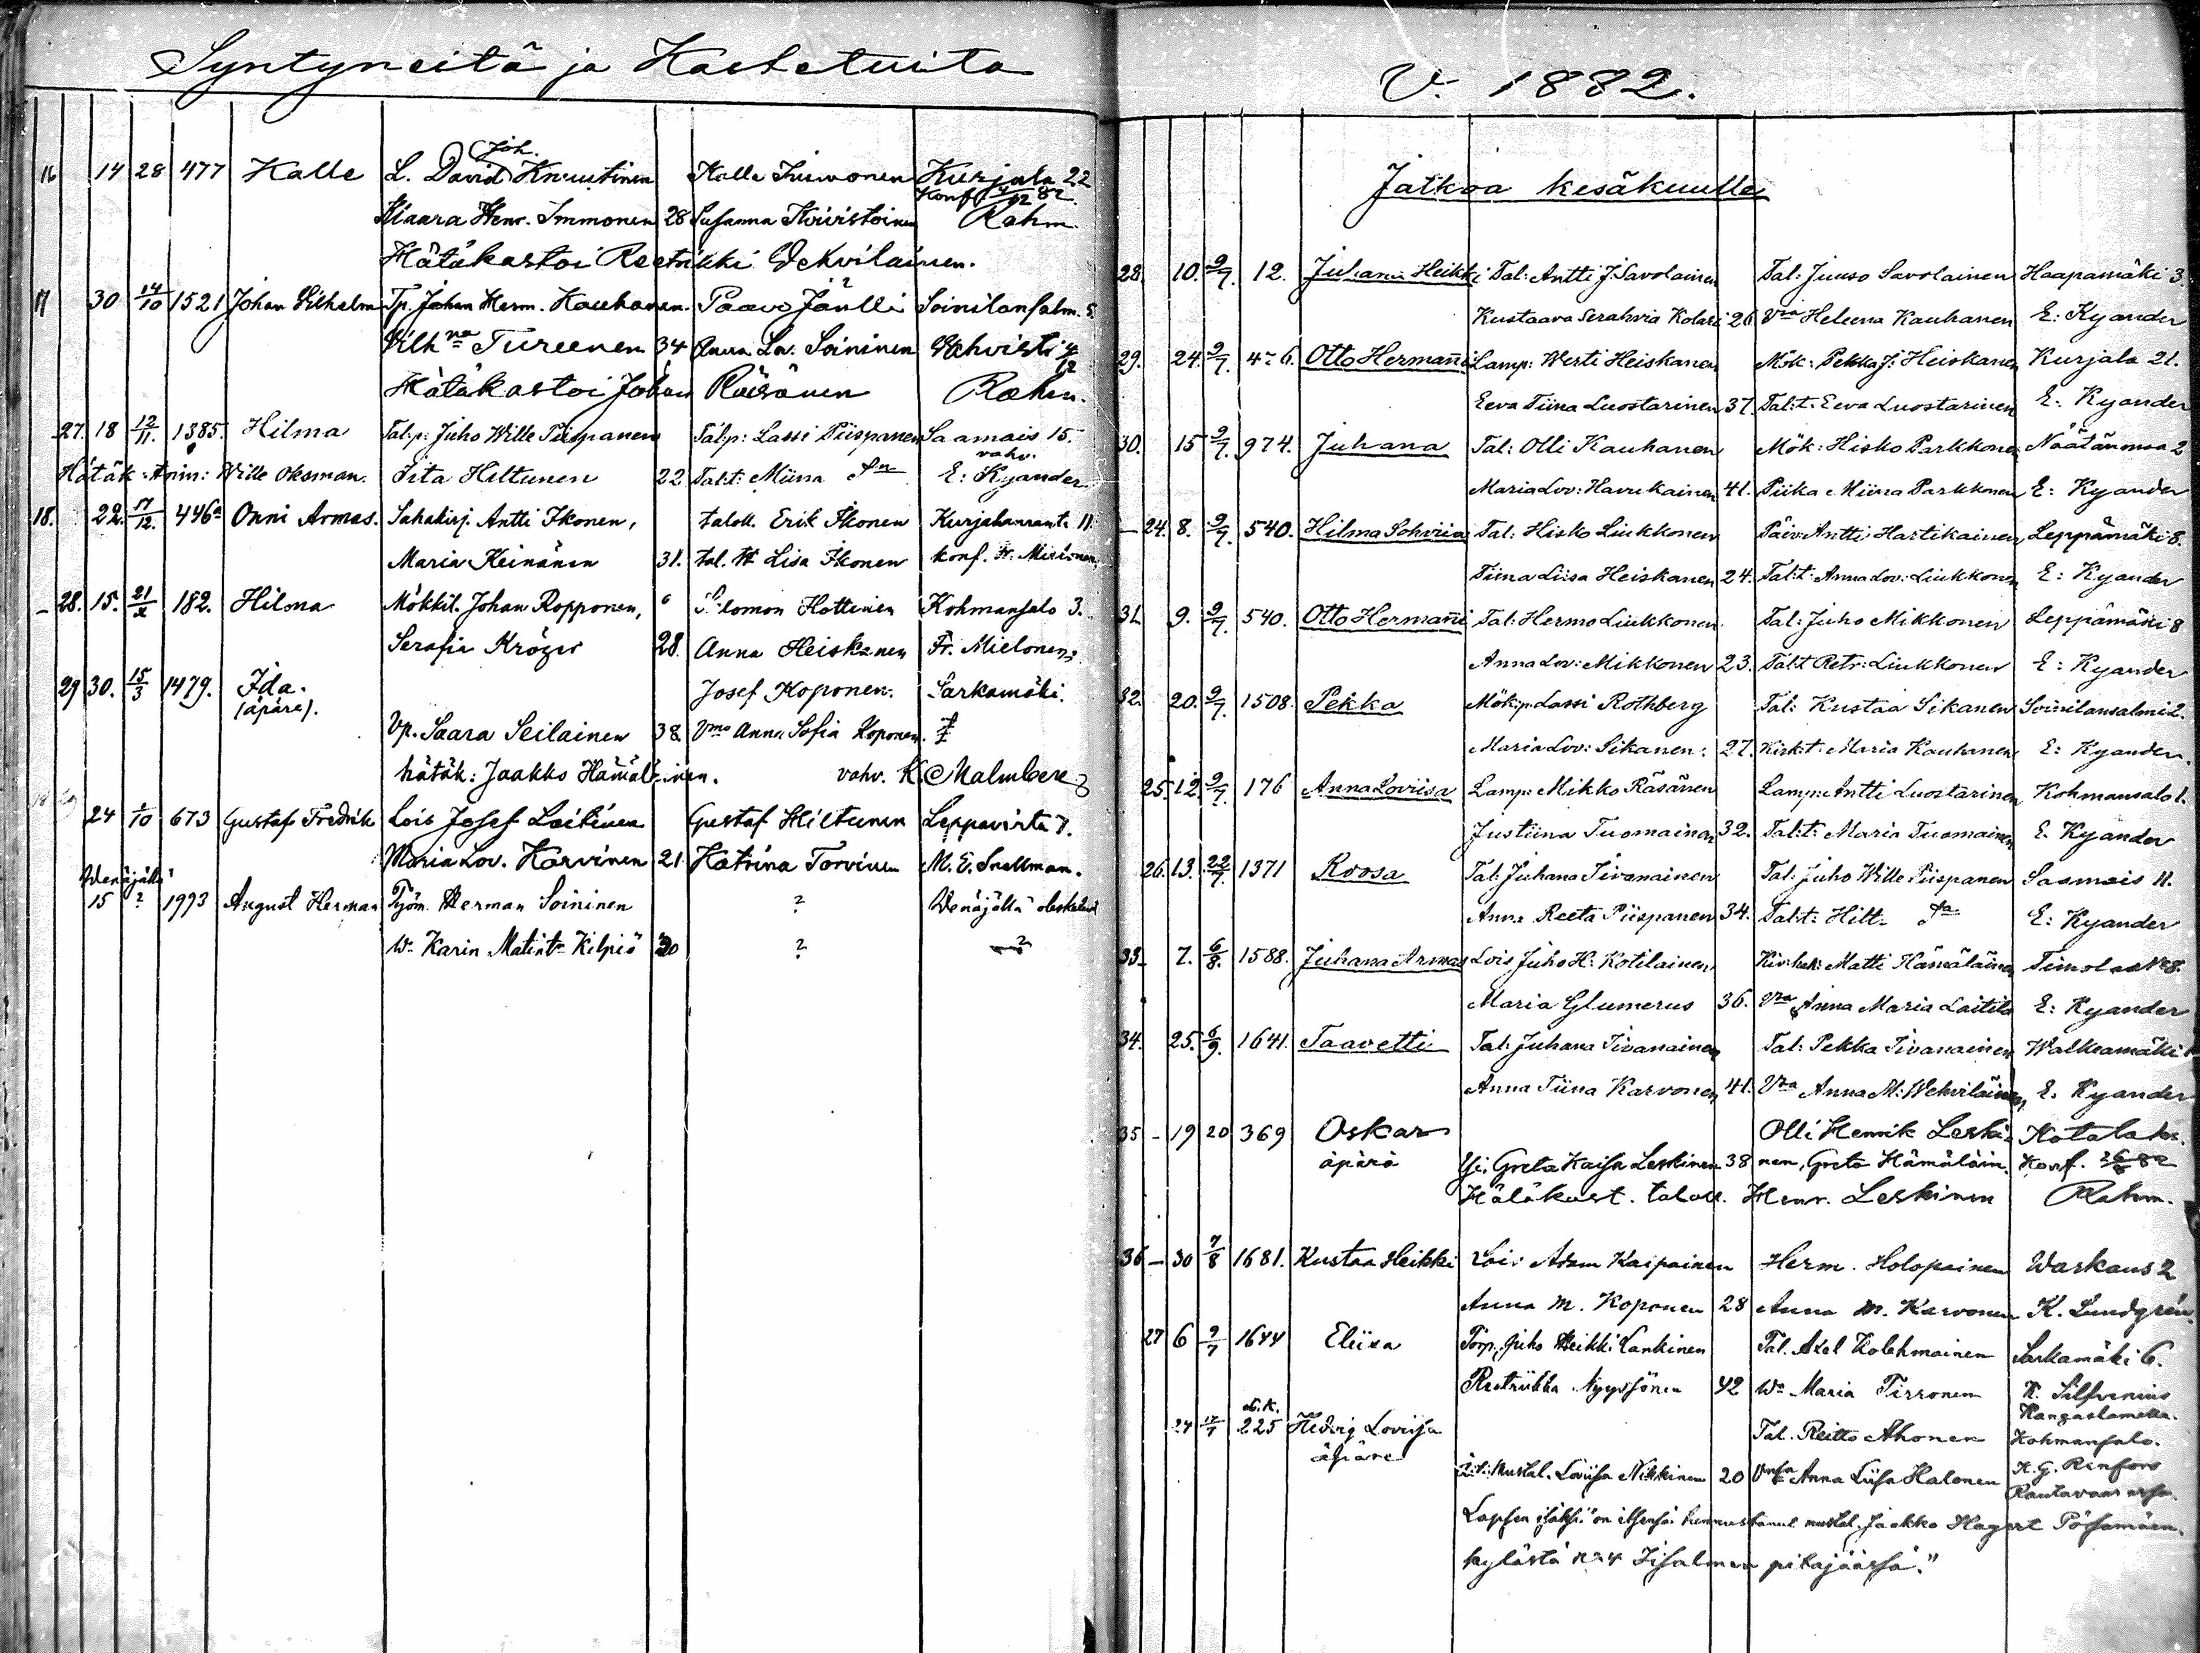 Syntyneitä ja Kastetuita
Joh.
16 14 28 477 Kalle L. David Knuutinen Kalle Kurjala 22
Konf 4/12 82.
Klaara Henr. Immonen 28 Susanna Koivistoinen Rahm.
Hätäkastoi Reetrikki
17 30 14/10 1521 Johan Vilhelm Tp. Johan Herm. Kauhanen Paavo Jäntti Soinilansalm. 5
Vilh:na Tureenen 34 Anna Lov. Soininen 4/12
Hätäkastoi Johan Räisänen Rahm.
27. 18 12/11. 1385. Hilma Tal:p: Juho Wille Piispanen Tal:p: Lassi Piispanen Saamais 15.
vahv.
Hätäk: Wille Oksman. Iita Hiltunen 22 Tal:t: Miina E: Kyander
18. 22. 17/12. 446a Onni Armas. Sahakirj. Antti Ikonen, taloll. Erik Ikonen Kurjalanranta 11.
Maria Keinänen 31. tal. tr Lisa Ikonen konf. Fr. Mielonen
28. 15. 21/2 182. Hilma Mökkil. Johan Ropponen, Salomon Hottinen Kohmansalo 3.
Serafia Kröger 28. Anna Heiskanen Fr. Mielonen
29 30. 15/3 1479. Ida. Josef Koponen. Sarkamäki.
(äpärä).
Vp. Saara Seilainen 38. Vmo Anna Sofia Koponen.
hätäk: Jaakko Hämäläinen. vahv. K C Malmberg
24 1/10 673 Gustaf Fredrik Lois Josef Laitinen Gustaf Hiltunen Leppävirta 7.
Maria Lov. Karvinen 21 Katrina Torvinen M. E. Snellman.
Wenäjällä
15 ? 1993 August Herman Työm. Herman Soininen ? Wenäjällä oleskelevat
W. Karin Matint:r Kilpiö 30 ? ?
V. 1882.
Jatkoa kesäkuulle
28. 10. 9/7. 12. Juhana Heikki Tal: Antti J. Savolainen Tal: Juuso Savolainen Haapamäki 3.
Kustaava Serahvia Kolari 26 Vra Heleena Kauhanen E: Kyander
29. 24. 9/7. 426. Otto Hermanni Lamp: Werti Heiskanen Mök: Pekka J: Heiskanen Kurjala 21.
Eeva Tiina Luostarinen 37. Tal:t: Eeva Luostarinen E: Kyander
30. 15 9/7. 974. Juhana Tal: Olli Kauhanen Mök: Hisko Parkkonen Näätänmaa 2
Maria Lov: Havukainen 41. Piika Miina Parkkonen E: Kyander
24. 8. 9/7. 540. Hilma Sohviia Tal: Hisko Liukkonen Päiv: Antti Hartikainen Leppämäki 8.
Tiina Liisa Heiskanen 24. Tal:t: Anna Lov: Liukkonen E: Kyander
31. 9. 9/7. 540. Otto Hermanni Tal: Hermo Liukkonen Tal: Juho Mikkonen Leppämäki 8
Anna Lov: Mikkonen 23. Tal:t Retr: Liukkonen E: Kyander
32. 20. 9/7. 1508. Pekka Mök:p Lassi Rothberg Tal: Kustaa Sikanen Soinilansalmi 2.
Maria Lov: Sikanen: 27. Kirk:t: Maria Kauhanen E: Kyander.
25. 12. 9/7. 176 Anna Loviisa Lamp: Mikko Räsänen Lamp: Antti Luostarinen Kohmansalo 1.
Justiina Tuomainen 32. Tal:t: Maria Tuomainen E. Kyander
26. 13. 22/7. 1371 Roosa Tal: Juhana Tivanainen Tal: Juho Wille Piispanen Saamais 11.
Anna Reeta Piispanen 34. Tal:t: Hilt. E: Kyander
33. 7. 6/8. 1588. Juhana Armas Lois Juho H: Kotilainen Kiv:hak: Matti Hämäläinen Timola No 8.
Maria Glumerus 36. Vra Anna Maria Laitila E: Kyander
34. 25. 6/9. 1641. Taavetti Tal: Juhana Tivanainen Tal: Pekka Tivanainen Walkeamäki
Anna Tiina Karvonen 41. Vra Anna M: Wehviläinen E. Kyander
35 - 19 20 369 Oskar Olli Henrik Leski- Kotala
äpärä Isi. Greta Kaisa Leskinen 38 nen, Greta Hämäläin. Konf.
Hätäkast. taloll. Henr. Leskinen Rahm.
36 - 30 7/8 1681. Kustaa Heikki Lois Adam Kaipainen Herm. Holopainen Warkaus 2
Anna M. Koponen 28 Anna M. Karvonen K. Lundgrén.
27 6 9/7 1644 Eliisa Torp. Juho Heikki Lankinen Tal. Axel Kolehmainen Sarkamäki 6.
Reetriikka Nyyssönen 42 W:o Maria Tirronen K. Silfvenius
Kangaslammilla.
24 17/7 L.K. 225 Hedvig Lovisa Tal. Reitto Ahonen Kohmansalo.
äpärä Iti. Mustal. Loviisa Nikkinen 20 Anna Liisa Halonen K. G. Rinfors
Rautavaarassa.
Lapsen isäksi on itsensä tunnustanut mustal. Jaakko Hagert Pölsämäen
kylästä No 4 Iisalmen pitäjäässä."